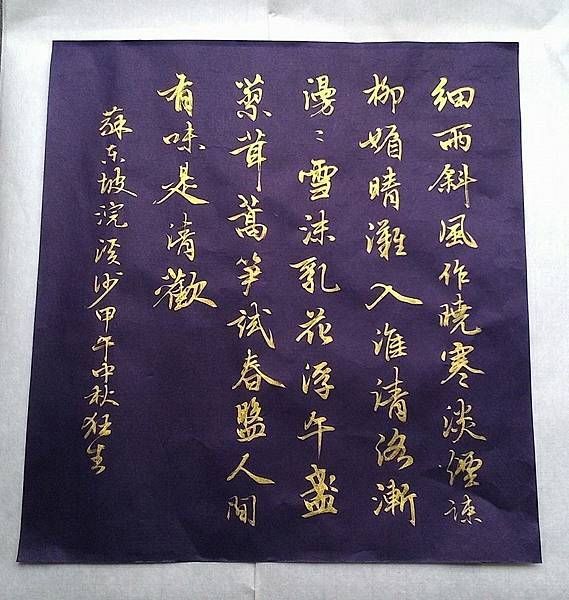 細雨斜風作曉寒淡煙疎
柳媚晴灘入淮清洛漸
漫〻雪沫乳花浮午盞
蓼茸蒿筍試春盤人間
有味是清歡
蘇东坡浣溪沙甲午中秋狂生